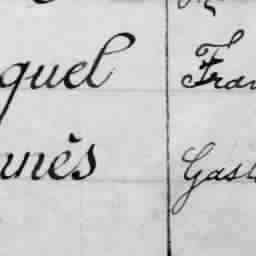 quel Fran
nnès Gast